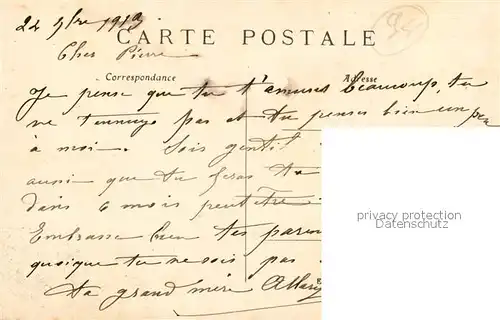 24 9bre 1913
94
CARTE POSTALE
Cher Pierre
Correspondance
Adresse
Je pense que tu t'amuses beaucoup, tu
ne t'ennuys pas et tu penses bien un peu
à moi. Sois gentil
aussi que tu feras ta
dans 6 mois peut être
privacy protection
Datenschutz
Embrasse bien tes paren
quoique tu ne sois pas
ta grand mère